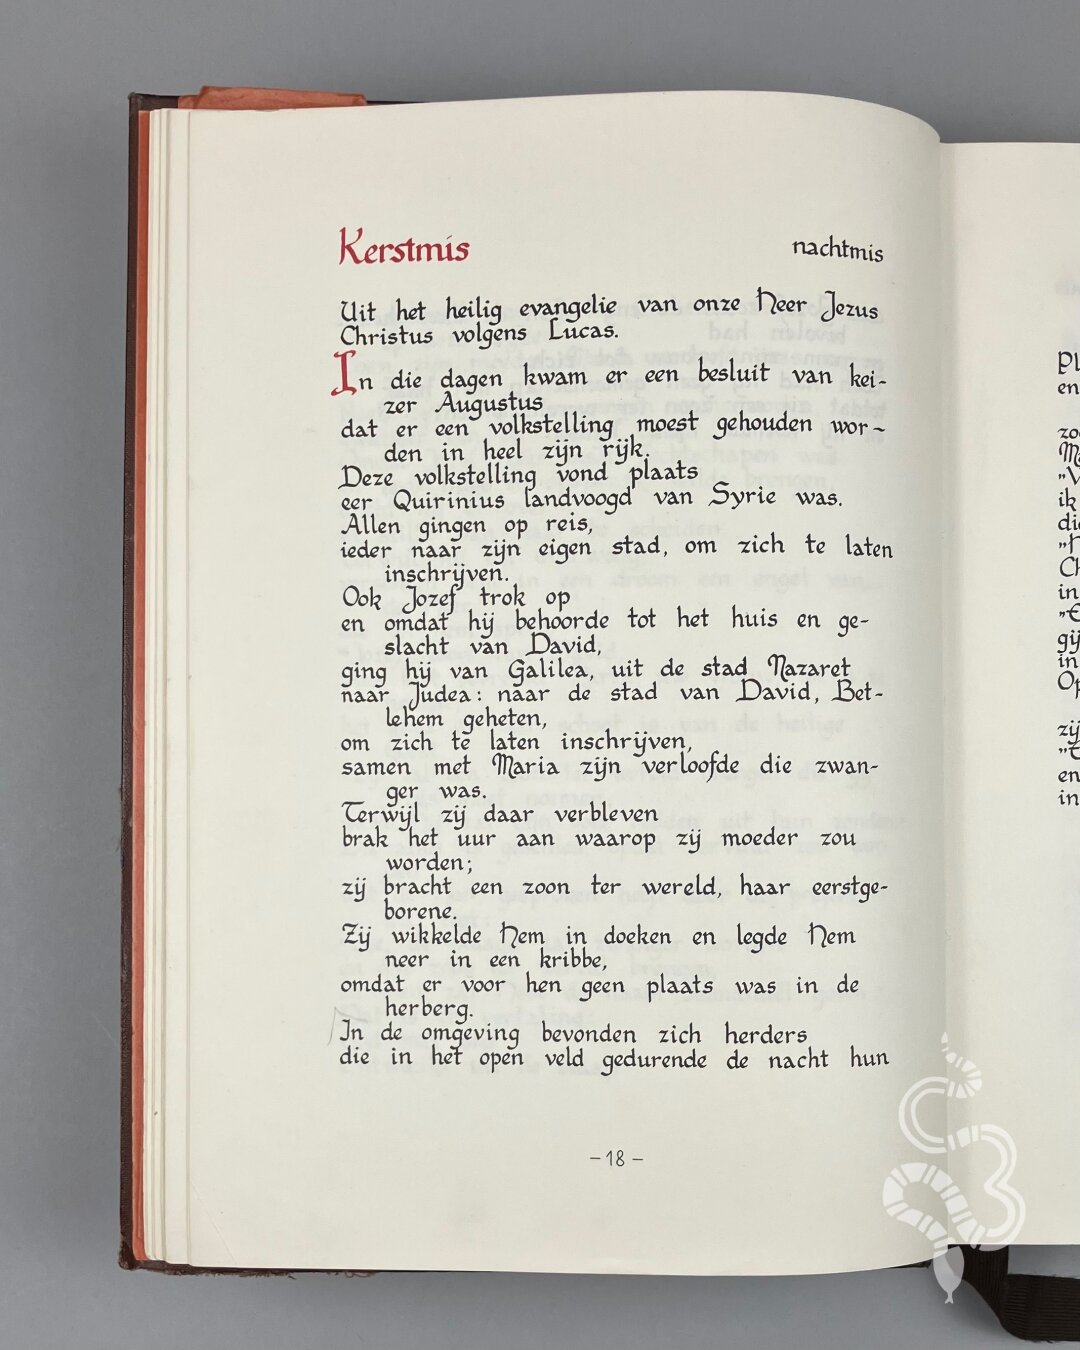 Kerstmis nachtmis
Uit het heilig evangelie van onze Heer Jezus
Christus volgens Lucas.
In die dagen kwam er een besluit van kei-
zer Augustus
dat er een volkstelling moest gehouden wor-
den in heel zijn rijk.
Deze volkstelling vond plaats
eer Quirinius landvoogd van Syrie was.
Allen gingen op reis,
ieder naar zijn eigen stad, om zich te laten
inschrijven.
Ook Jozef trok op
en omdat hij behoorde tot het huis en ge-
slacht van David,
ging hij van Galilea, uit de stad Nazaret
naar Judea: naar de stad van David, Bet-
lehem geheten,
om zich te laten inschrijven,
samen met Maria zijn verloofde die zwan-
ger was.
Terwijl zij daar verbleven
brak het uur aan waarop zij moeder zou
worden;
zij bracht een zoon ter wereld, haar eerstge-
borene.
Zij wikkelde Hem in doeken en legde Hem
neer in een kribbe,
omdat er voor hen geen plaats was in de
herberg.
In de omgeving bevonden zich herders
die in het open veld gedurende de nacht hun
-18-